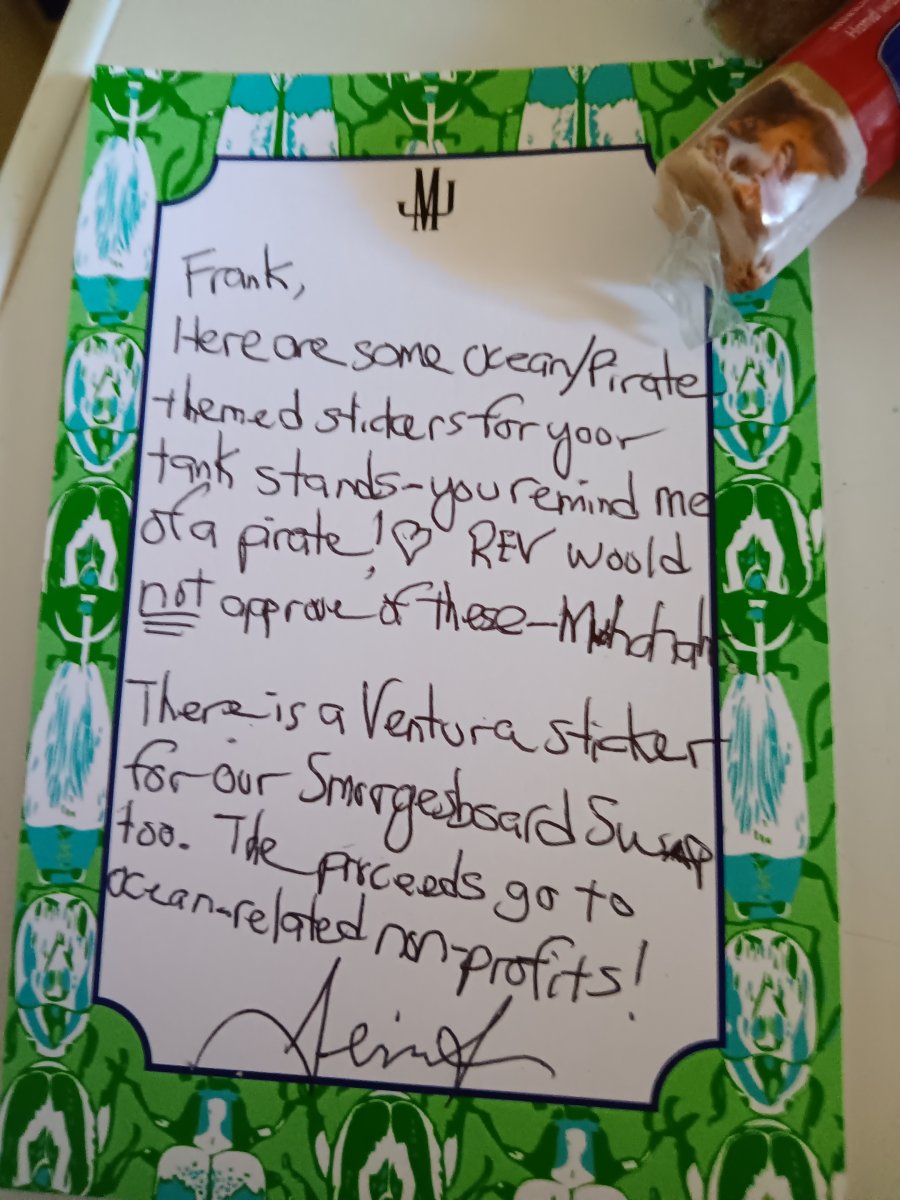 JMJ
Frank,
Here are some ocean/Pirate
themed stickers for your
tank stands-you remind me
of a pirate! ♡ REV would
not approve of these-Muhahah
There is a Ventura sticker
for our Smorgesboard Swap
too. The proceeds go to
ocean-related non-profits!